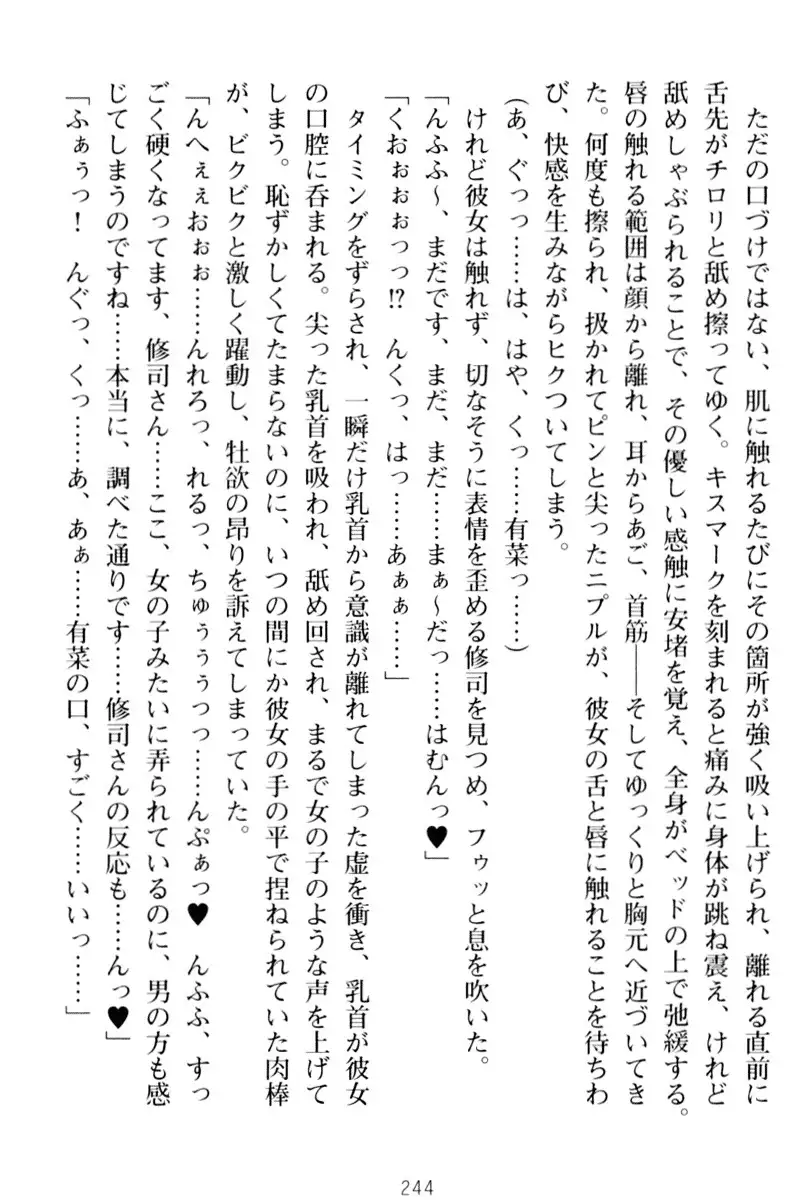 ただの口づけではない、肌に触れるたびにその箇所が強く吸い上げられ、離れる直前に
舌先がチロリと舐め擦ってゆく。キスマークを刻まれると痛みに身体が跳ね震え、けれど
舐めしゃぶられることで、その優しい感触に安堵を覚え、全身がベッドの上で弛緩する。
唇の触れる範囲は顔から離れ、耳からあご、首筋――そしてゆっくりと胸元へ近づいてき
た。何度も擦られ、扱かれてピンと尖ったニプルが、彼女の舌と唇に触れることを待ちわ
び、快感を生みながらヒクついてしまう。
（あ、ぐっっ……は、はや、くっ……有菜っ……）
　けれど彼女は触れず、切なそうに表情を歪める修司を見つめ、フゥッと息を吹いた。
「んふふ～、まだです、まだ、まだ……まぁ～だっ……はむんっ♥」
「くおぉぉぉっっ!?　んくっ、はっ……あぁぁ……」
　タイミングをずらされ、一瞬だけ乳首から意識が離れてしまった虚を衝き、乳首が彼女
の口腔に呑まれる。尖った乳首を吸われ、舐め回され、まるで女の子のような声を上げて
しまう。恥ずかしくてたまらないのに、いつの間にか彼女の手の平で捏ねられていた肉棒
が、ビクビクと激しく躍動し、牡欲の昂りを訴えてしまっていた。
「んへぇぇおぉぉ……んれろっ、れるっ、ちゅぅぅぅっっ……んぷぁっ♥　んふふ、すっ
ごく硬くなってます、修司さん……ここ、女の子みたいに弄られているのに、男の方も感
じてしまうのですね……本当に、調べた通りです……修司さんの反応も……んっ♥」
「ふぁぅっ！　んぐっ、くっ……あ、あぁ……有菜の口、すごく……いいっ……」
244